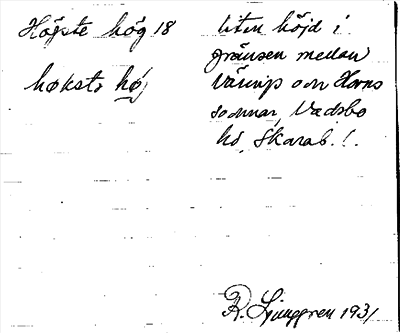 Högste hög 18
høkste høj
liten höjd i
gränsen mellan
Värmps och Horns
socknar, Vadsbo
hd, Skarab. l.
R. Ljunggren 1931